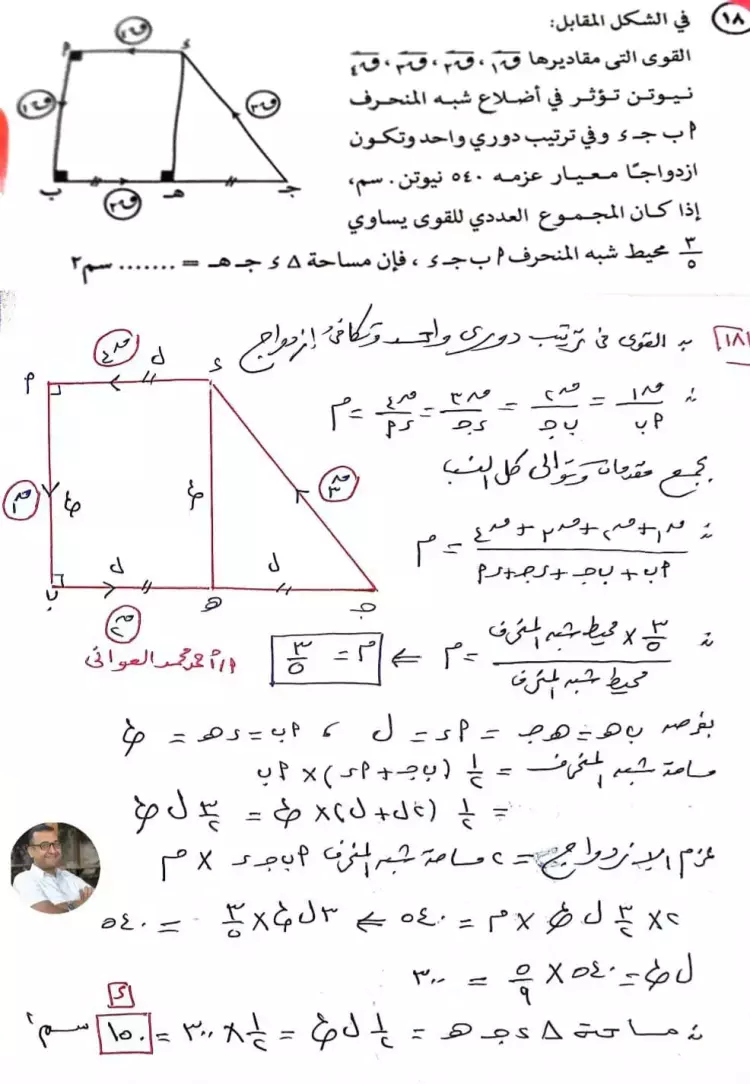 ١٨ في الشكل المقابل:
القوى التى مقاديرها ق١ ، ق٢ ، ق٣ ، ق٤
نيوتن تؤثر في أضلاع شبه المنحرف
٢ ب جـ ء وفي ترتيب دوري واحد وتكون
ازدواجًا معيار عزمه ٥٤٠ نيوتن . سم،
إذا كان المجموع العددي للقوى يساوي
٣/٥ محيط شبه المنحرف ٢ ب جـ ء ، فإن مساحة Δ ء جـ هـ = ....... سم٢
ق٤
٢ ء
ق١ ق٣
ب هـ جـ
ق٢
١٨ ∵ القوى فى ترتيب دورى واحد وتكافئ إزدواج
∴ ق١/٢ب = ق٢/ب جـ = ق٣/ء جـ = ق٤/٢ء = م
بجمع مقدمات وتوالى كل النسب
∴ (ق١ + ق٢ + ق٣ + ق٤)/(٢ب + ب جـ + ء جـ + ٢ء) = م
ق٤ ل
٢ ء
ق١ ع ع ق٣
ل ل
ب هـ جـ
ق٢
∴ (٣/٥ × محيط شبه المنحرف)/(محيط شبه المنحرف) = م ⇐ م = ٣/٥
أ/أحمد محمد العوانى
بفرض ب هـ = هـ جـ = ٢ء = ل ، ٢ب = ء هـ = ع
مساحة شبه المنحرف = ١/٢ (ب جـ + ٢ء) × ٢ب
= ١/٢ (٢ل + ل) × ع = ٣/٢ ل ع
عزم الإزدواج = ٢ مساحة شبه المنحرف ٢ ب جـ ء × م
٢ × ٣/٢ ل ع × م = ٥٤٠ ⇐ ٣ ل ع × ٣/٥ = ٥٤٠
ل ع = ٥٤٠ × ٥/٩ = ٣٠٠
∴ مساحة Δ ء جـ هـ = ١/٢ ل ع = ١/٢ × ٣٠٠ = ١٥٠ سم٢